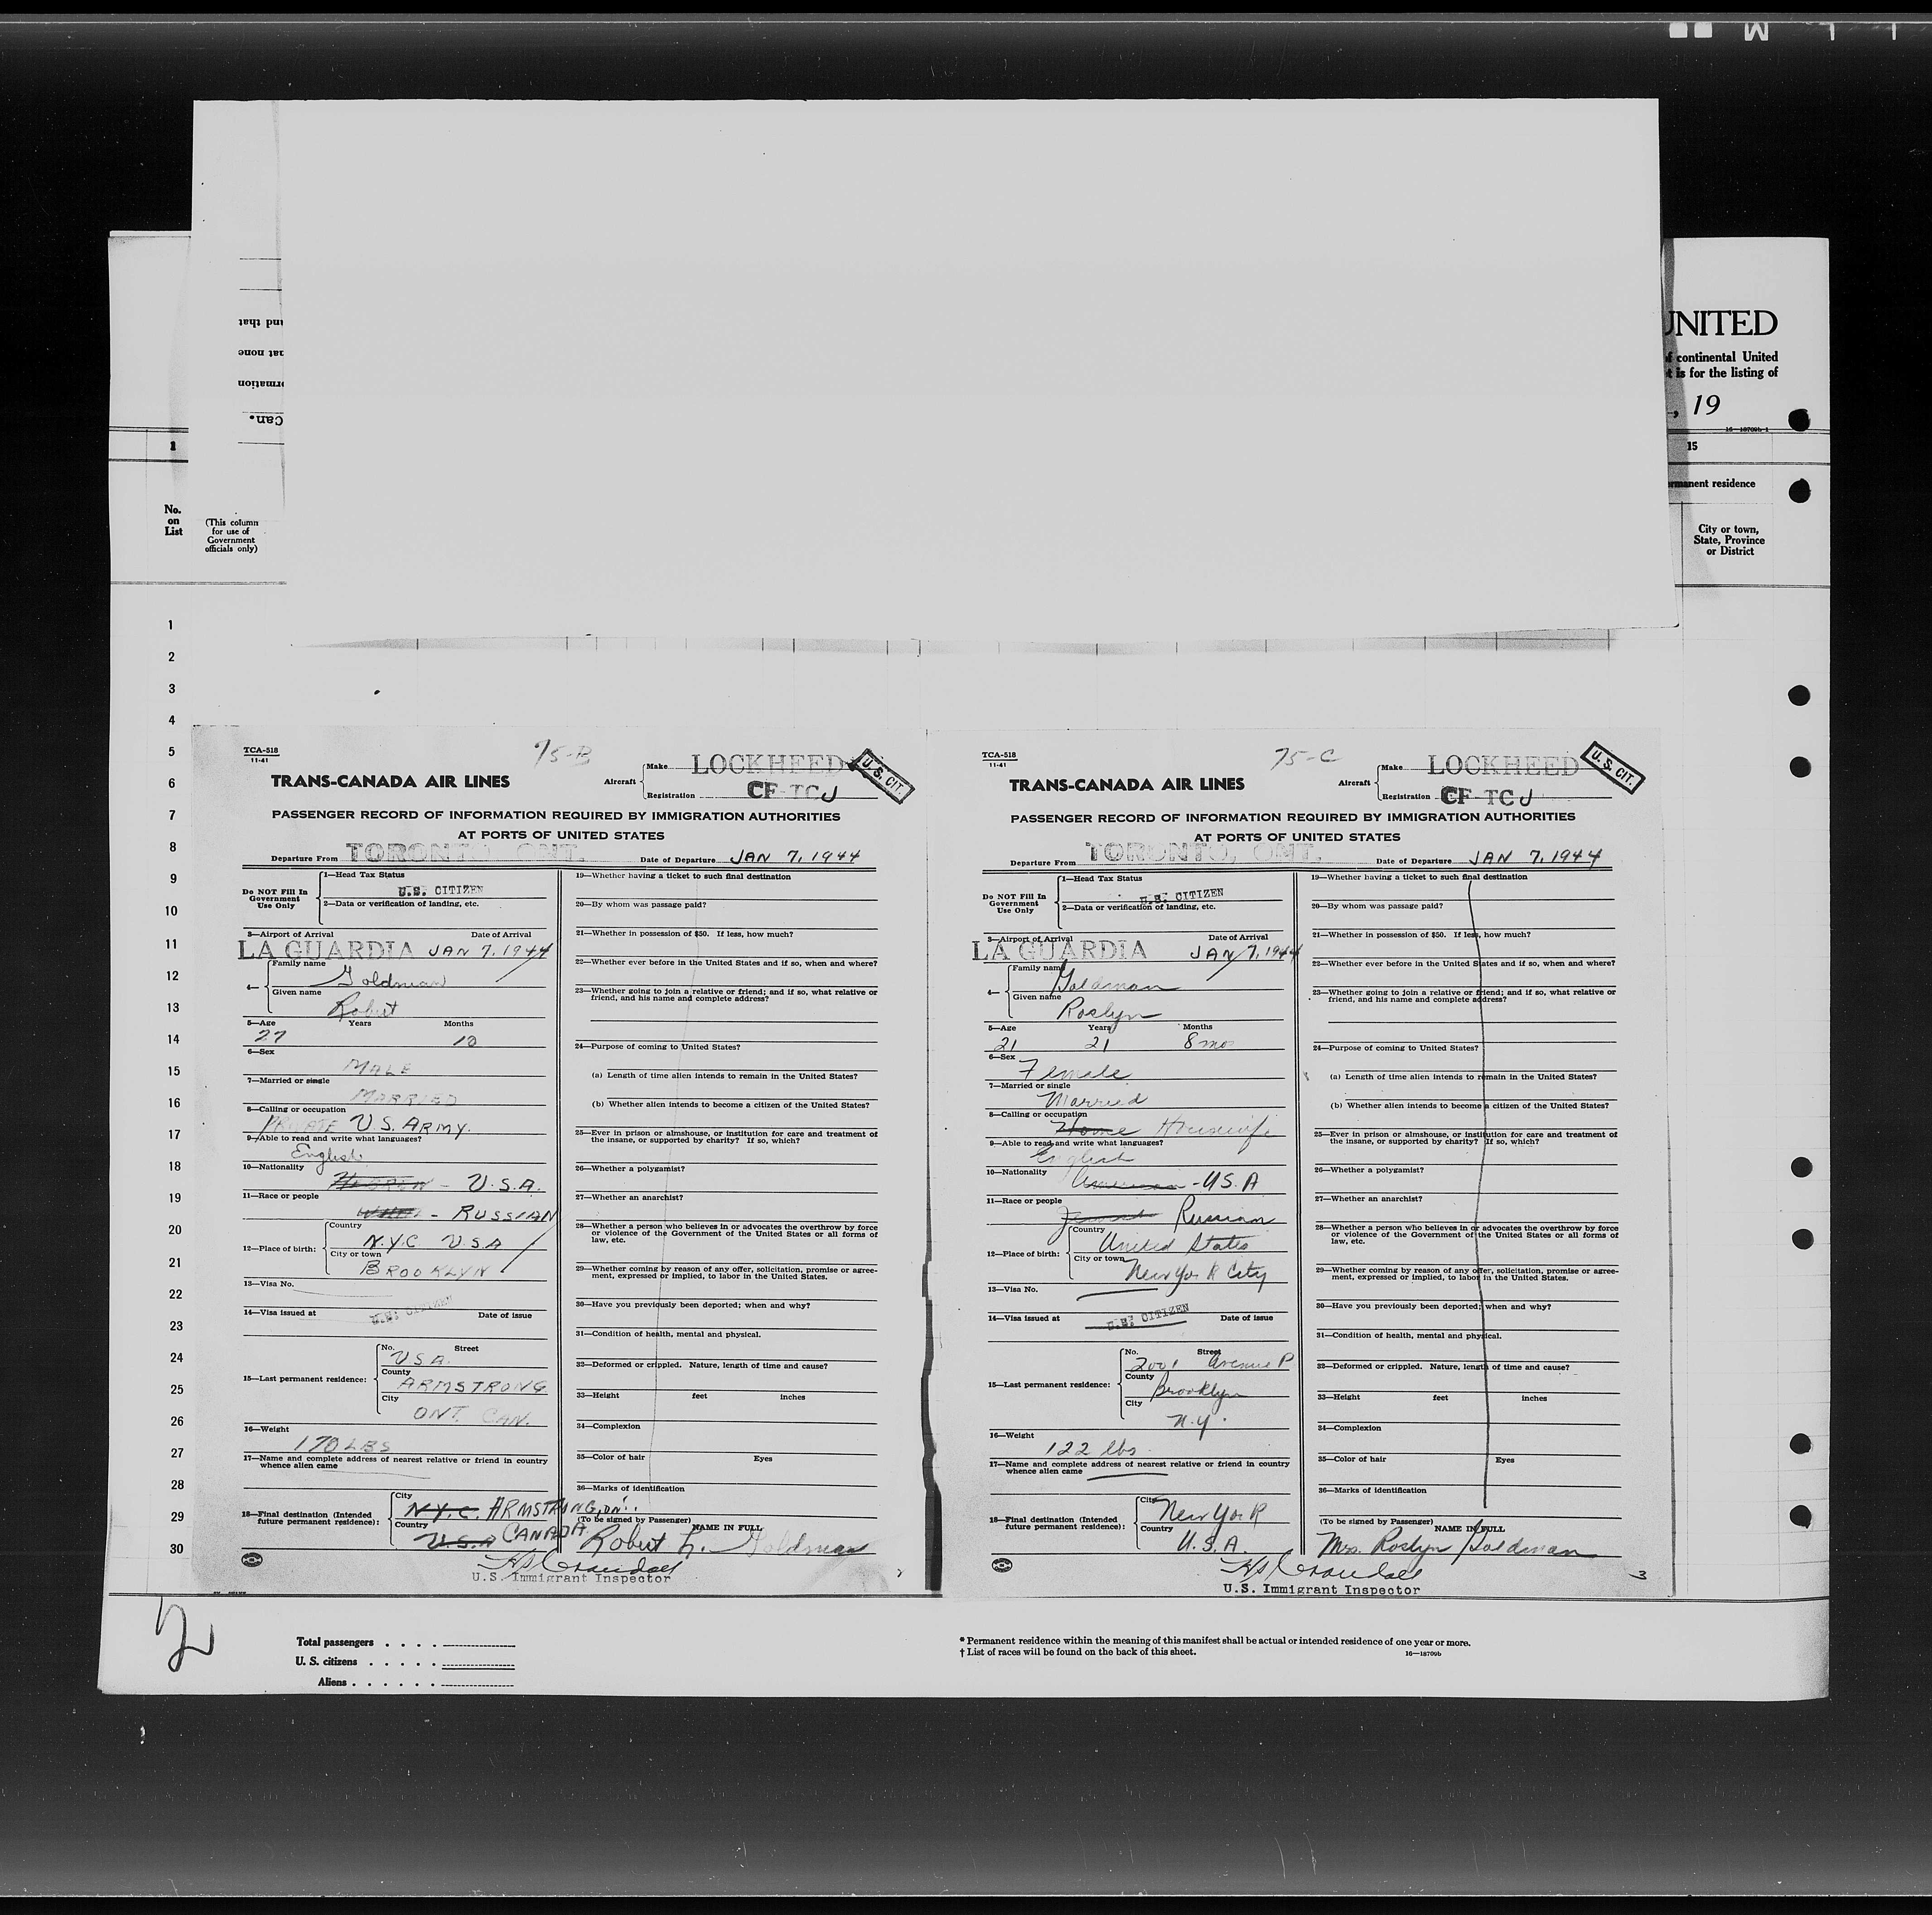 UNITED
of continental United
t is for the listing of
, 19
16—18709b-1
1
15
rmanent residence
No.
on
List
(This column
for use of
Government
officials only)
City or town,
State, Province
or District
and that
at none
ormation
Can.
1
2
3
4
5
6
7
8
9
10
11
12
13
14
15
16
17
18
19
20
21
22
23
24
25
26
27
28
29
30
TCA-518
11-41
75-B
TRANS-CANADA AIR LINES
Aircraft
Make LOCKHEED
Registration CF-TCJ
U.S. CIT.
PASSENGER RECORD OF INFORMATION REQUIRED BY IMMIGRATION AUTHORITIES
AT PORTS OF UNITED STATES
Departure From TORONTO, ONT. Date of Departure JAN 7, 1944
Do NOT Fill In
Government
Use Only
1—Head Tax Status
U.S. CITIZEN
2—Data or verification of landing, etc.
3—Airport of Arrival Date of Arrival
LA GUARDIA JAN 7, 1944
4— Family name
Goldman
Given name
Robert
5—Age Years Months
27 10
6—Sex
MALE
7—Married or single
MARRIED
8—Calling or occupation
PRIVATE U.S. ARMY.
9—Able to read and write what languages?
English
10—Nationality
HEBREW - U.S.A.
11—Race or people
- RUSSIAN
12—Place of birth:
Country
N.Y.C U.S.A
City or town
BROOKLYN
13—Visa No.
14—Visa issued at U.S. CITIZEN Date of issue
15—Last permanent residence:
No. Street
U.S.A.
County
ARMSTRONG
City
ONT. CAN.
16—Weight
170 LBS
17—Name and complete address of nearest relative or friend in country
whence alien came
18—Final destination (Intended
future permanent residence):
City
N.Y.C. ARMSTRONG, ONT.
Country
U.S.A CANADA
19—Whether having a ticket to such final destination
20—By whom was passage paid?
21—Whether in possession of $50. If less, how much?
22—Whether ever before in the United States and if so, when and where?
23—Whether going to join a relative or friend; and if so, what relative or
friend, and his name and complete address?
24—Purpose of coming to United States?
(a) Length of time alien intends to remain in the United States?
(b) Whether alien intends to become a citizen of the United States?
25—Ever in prison or almshouse, or institution for care and treatment of
the insane, or supported by charity? If so, which?
26—Whether a polygamist?
27—Whether an anarchist?
28—Whether a person who believes in or advocates the overthrow by force
or violence of the Government of the United States or all forms of
law, etc.
29—Whether coming by reason of any offer, solicitation, promise or agree-
ment, expressed or implied, to labor in the United States.
30—Have you previously been deported; when and why?
31—Condition of health, mental and physical.
32—Deformed or crippled. Nature, length of time and cause?
33—Height feet inches
34—Complexion
35—Color of hair Eyes
36—Marks of identification
(To be signed by Passenger)
NAME IN FULL
Robert L. Goldman
HS Crandall
U.S. Immigrant Inspector
TCA-518
11-41
75-C
TRANS-CANADA AIR LINES
Aircraft
Make LOCKHEED
Registration CF-TCJ
U.S. CIT.
PASSENGER RECORD OF INFORMATION REQUIRED BY IMMIGRATION AUTHORITIES
AT PORTS OF UNITED STATES
Departure From TORONTO, ONT. Date of Departure JAN 7, 1944
Do NOT Fill In
Government
Use Only
1—Head Tax Status
U.S. CITIZEN
2—Data or verification of landing, etc.
3—Airport of Arrival Date of Arrival
LA GUARDIA JAN 7, 1944
4— Family name
Goldman
Given name
Roslyn
5—Age Years Months
21 21 8 mo
6—Sex
Female
7—Married or single
Married
8—Calling or occupation
Home Housewife
9—Able to read and write what languages?
English
10—Nationality
American - U.S.A
11—Race or people
Jewish Russian
12—Place of birth:
Country
United States
City or town
New York City
13—Visa No.
14—Visa issued at U.S. CITIZEN Date of issue
15—Last permanent residence:
No. Street
2001 Avenue P.
County
Brooklyn
City
N.Y.
16—Weight
122 lbs.
17—Name and complete address of nearest relative or friend in country
whence alien came
18—Final destination (Intended
future permanent residence):
City
New York
Country
U.S.A.
19—Whether having a ticket to such final destination
20—By whom was passage paid?
21—Whether in possession of $50. If less, how much?
22—Whether ever before in the United States and if so, when and where?
23—Whether going to join a relative or friend; and if so, what relative or
friend, and his name and complete address?
24—Purpose of coming to United States?
(a) Length of time alien intends to remain in the United States?
(b) Whether alien intends to become a citizen of the United States?
25—Ever in prison or almshouse, or institution for care and treatment of
the insane, or supported by charity? If so, which?
26—Whether a polygamist?
27—Whether an anarchist?
28—Whether a person who believes in or advocates the overthrow by force
or violence of the Government of the United States or all forms of
law, etc.
29—Whether coming by reason of any offer, solicitation, promise or agree-
ment, expressed or implied, to labor in the United States.
30—Have you previously been deported; when and why?
31—Condition of health, mental and physical.
32—Deformed or crippled. Nature, length of time and cause?
33—Height feet inches
34—Complexion
35—Color of hair Eyes
36—Marks of identification
(To be signed by Passenger)
NAME IN FULL
Mrs. Roslyn Goldman
HS Crandall
U.S. Immigrant Inspector
3
2
Total passengers . . . .
U. S. citizens . . . . .
Aliens . . . . . .
* Permanent residence within the meaning of this manifest shall be actual or intended residence of one year or more.
† List of races will be found on the back of this sheet.
16—18709b